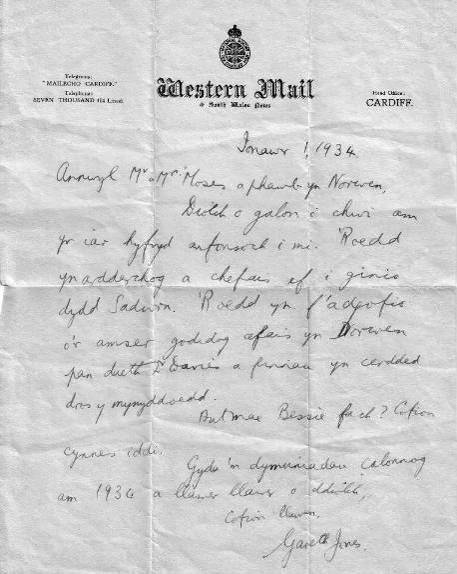 Telegrams:
"MAILECHO CARDIFF."
Telephone:
SEVEN THOUSAND (14 Lines).
Western Mail
& South Wales News
Head Office:
CARDIFF.
Ionawr 1, 1934.
Annwyl Mr. a Mrs Moses a phawb yn Norwen,
Diolch o galon i chwi am
yr iar hyfryd anfonsoch i mi. 'Roedd
yn ardderchog a chefais ef i ginio
dydd Sadwrn. 'Roedd yn f'adgofio
o'r amser godidog gefais yn Dorwen
pan daeth Davies a finnau yn cerdded
dros y mynyddoedd.
Sut mae Bessie fach? Cofion
cynnes iddi.
Gyda'm dymuniadau calonnog
am 1934 a llawer llawr o ddiolch,
Cofion llawen,
Gareth Jones.